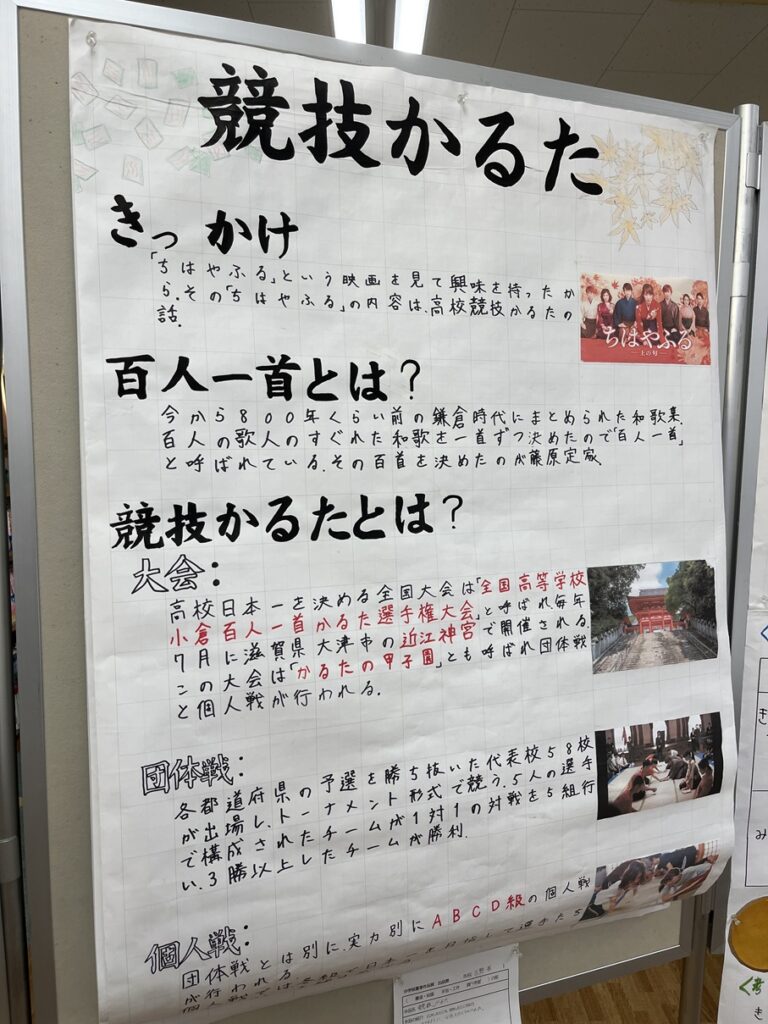 競技かるた
きっかけ
「ちはやふる」という映画を見て興味を持ったか
ら.その「ちはやふる」の内容は、高校競技かるたの
話.
ちはやふる
上の句
百人一首とは?
今から800年くらい前の鎌倉時代にまとめられた和歌集.
百人の歌人のすぐれた和歌を一首ずつ決めたので「百人一首」
と呼ばれている.その百首を決めたのが藤原定家.
競技かるたとは?
大会:
高校日本一を決める全国大会は「全国高等学校
小倉百人一首かるた選手権大会」と呼ばれ毎年
7月に滋賀県大津市の近江神宮で開催される.
この大会は「かるたの甲子園」とも呼ばれ団体戦
と個人戦が行われる.
団体戦:
各都道府県の予選を勝ち抜いた代表校58校
が出場し、トーナメント形式で競う.5人の選手
で構成されたチームが1対1の対戦を5組行
い.3勝以上したチームが勝利.
個人戦:
団体戦とは別に、実力別にABCD級の個人戦
が行われる
個人戦では